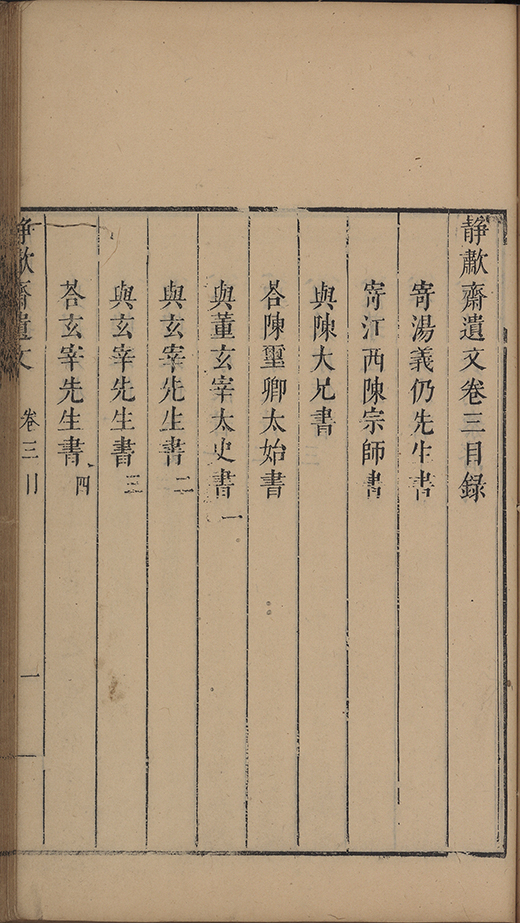 靜歗齋遺文卷三目録
寄湯義仍先生書
寄江西陳宗師書
與陳大兄書
荅陳璽卿太始書
與董玄宰太史書一
與玄宰先生書二
與玄宰先生書三
荅玄宰先生書四
靜歗齋遺文 卷三目 一